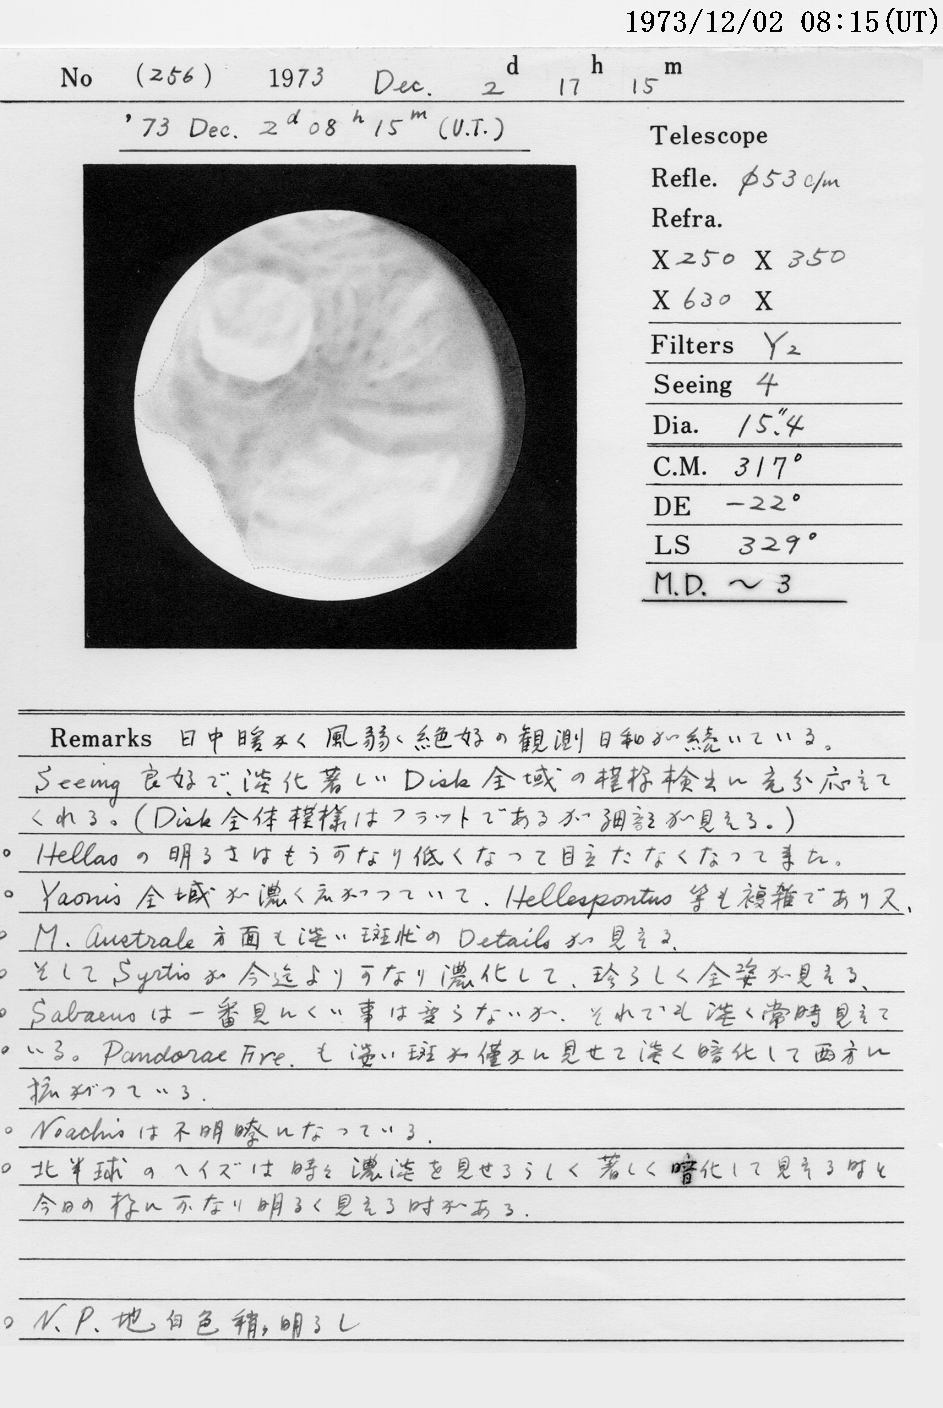 1973/12/02 08:15(UT)
No (256) 1973 Dec. 2 d 17 h 15 m
'73 Dec. 2 d 08 h 15 m (U.T.)
Telescope
Refle. φ53 c/m
Refra.
X 250 X 350
X 630 X
Filters Y2
Seeing 4
Dia. 15."4
C.M. 317°
DE -22°
LS 329°
M.D. ~ 3
Remarks 日中暖かく風弱く絶好の観測日和が続いている。
Seeing 良好で、淡化著しい Disk 全域の模様検出に充分応えて
くれる。(Disk 全体模様はフラットであるが細部が見える。)
○ Hellas の明るさはもう可なり低くなって目立たなくなって来た。
○ Yaonis 全域が濃く広がっていて、Hellespontus 等も複雑であり又、
○ M. Australe 方面も淡い斑状の Details が見える、
○ そして Syrtis が今迄より可なり濃化して、珍らしく全姿が見える、
○ Sabaeus は一番見にくい事は変らないが、それでも淡く常時見えて
○ いる。Pandorae Fre. も淡い斑が僅かに見せて淡く暗化して西方に
拡がっている.
○ Noachis は不明瞭になっている.
○ 北半球のヘイズは時々濃淡を見せるらしく著しく暗化して見える時と
今日の様に可なり明るく見える時がある.
○ N.P.地 白色稍々明るし